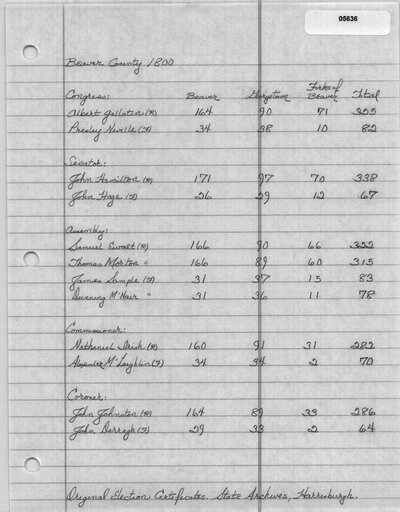 05636
Beaver County 1800
Congress: Beaver Georgetown Forks of Beaver Total
Albert Gallatin (R) 164 90 71 325
Presley Neville (F) 34 38 10 82
Senator:
John Hamilton (R) 171 97 70 338
John Hoge (F) 26 29 12 67
Assembly:
Samuel Ewalt (R) 166 90 66 322
Thomas Morton " 166 89 60 315
James Sample (F) 31 37 15 83
Dunning McNair " 31 36 11 78
Commissioner:
Nathaniel Irish (R) 160 91 31 282
Alexander McLaughlin (F) 34 34 2 70
Coroner:
John Johnston (R) 164 89 33 286
John Darragh (F) 29 33 2 64
Original Election Certificates. State Archives, Harrisburgh.